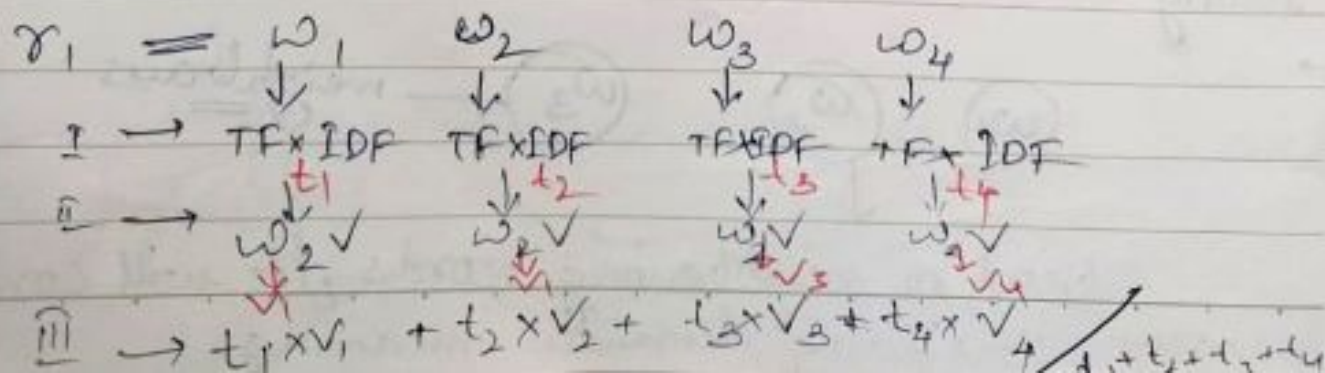 r1 = w1 w2 w3 w4
I → TF×IDF TF×IDF TF×IDF TF× IDF
t1 t2 t3 t4
II → w2V w2V w2V w2V
V1 V1 V3 V4
III → t1×V1 + t2×V2 + t3×V3 + t4×V4 / t1+t2+t3+t4